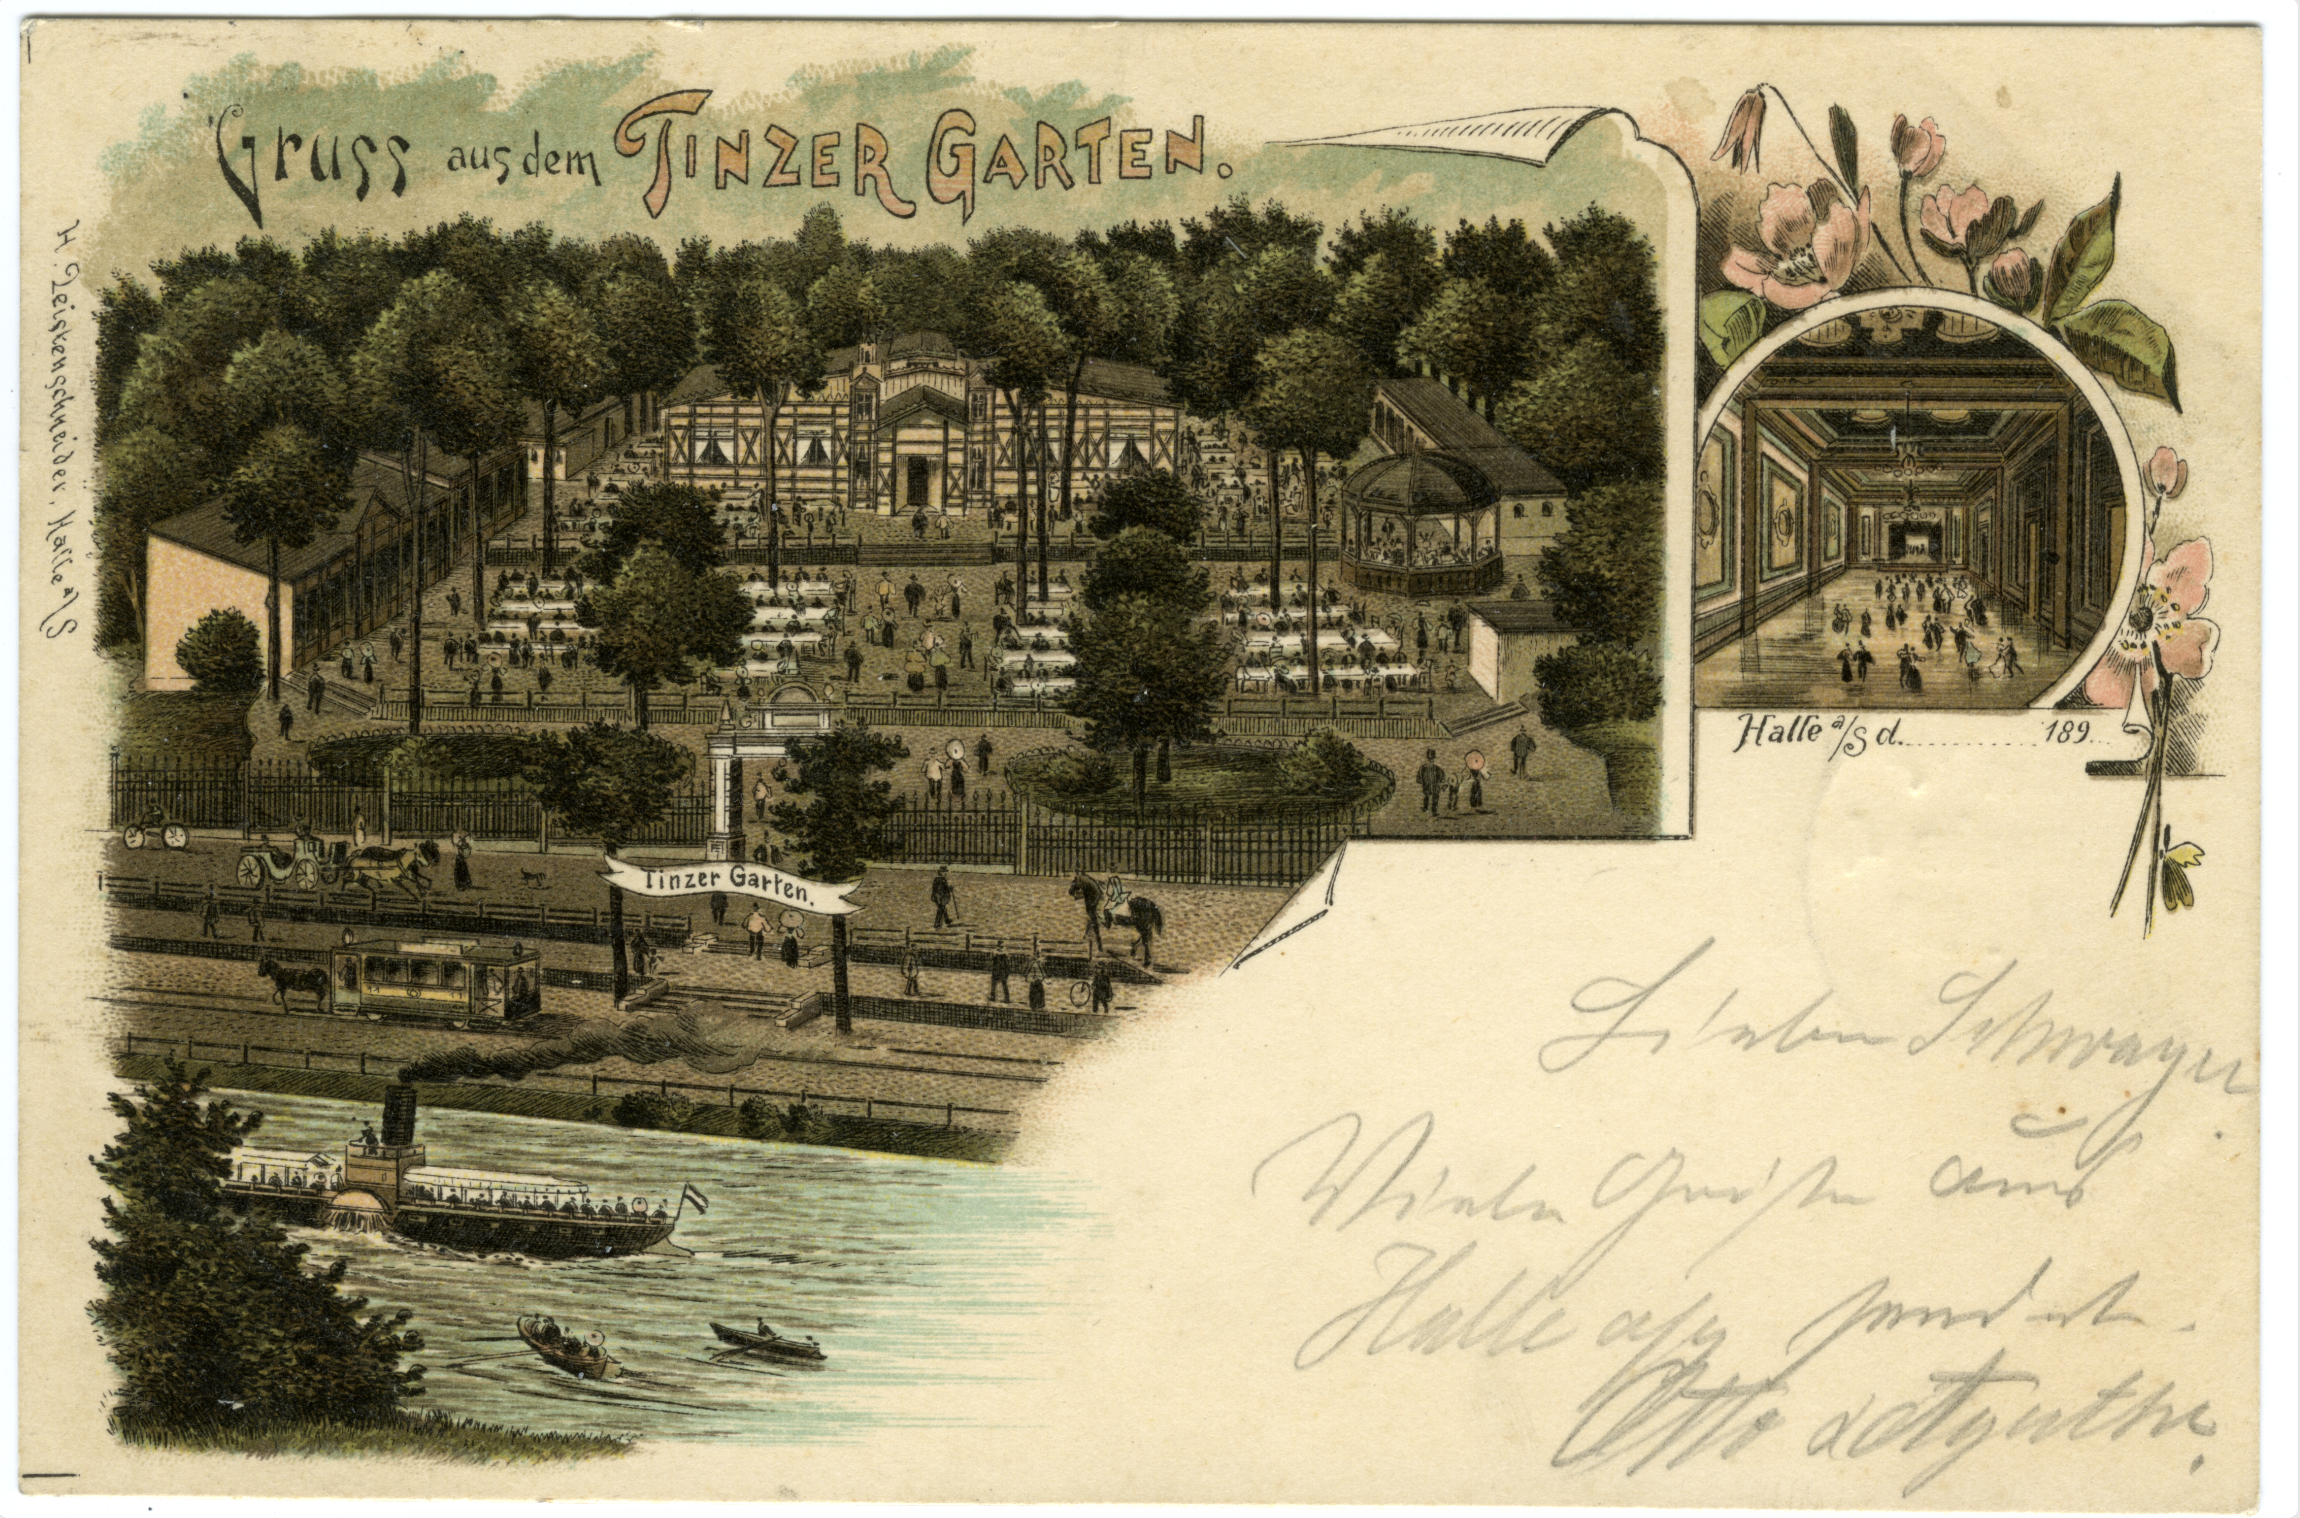 Gruss aus dem TINZER GARTEN.
H. Zeiskenschneider, Halle a/S
Tinzer Garten.
Halle a/S d. .............. 189...
Lieber Schwager
Viele Grüße aus
Halle a/S sendet
Otto